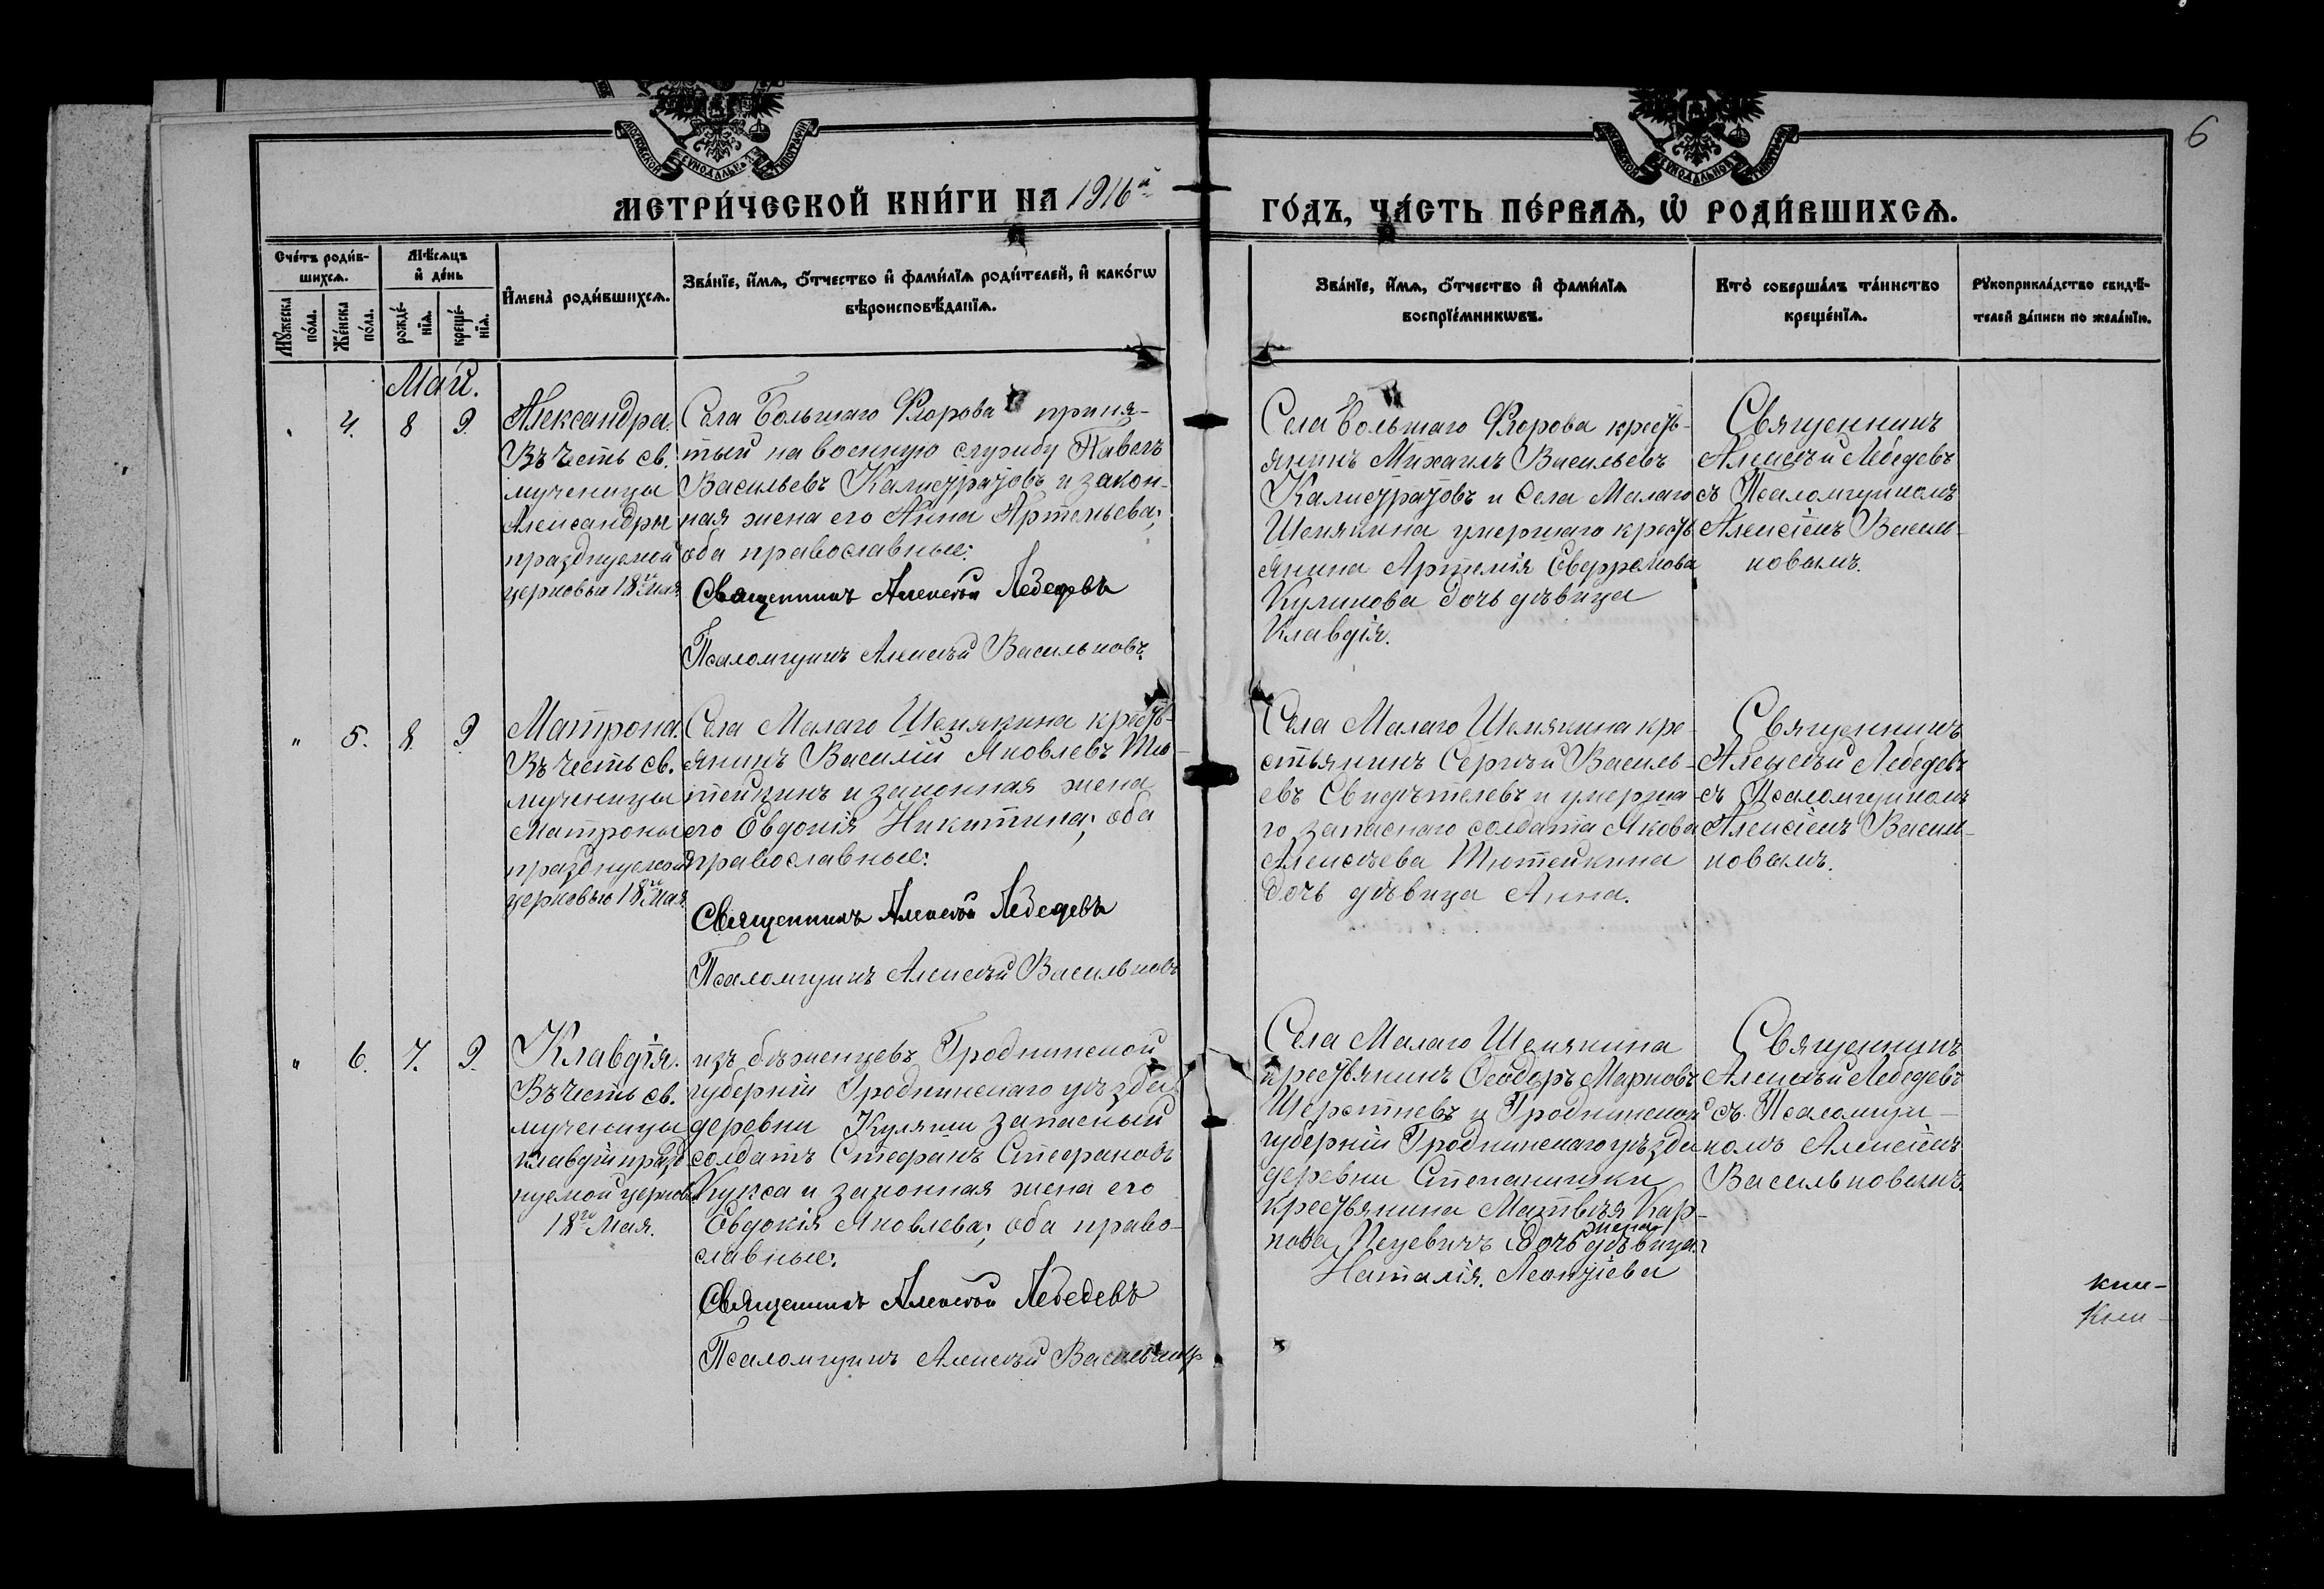 6
МЕТРИ́ЧЕСКОЙ КНИ́ГИ НА 1916й
ГО́ДЪ, ЧА́СТЬ ПЕ́РВАѦ, Ѡ҆ РОДИ́ВШИХСѦ.
Сче́тъ роди́в-
шихсѧ.
Мѣ́сѧцъ
и҆ де́нь
Мꙋ́жеска
по́ла.
Же́нска
по́ла.
рожде́-
нїѧ.
креще́-
нїѧ.
И҆мена̀ роди́вшихсѧ.
Зва́нїе, и҆́мѧ, ѻ҆́тчество и҆ фами́лїѧ роди́телей, и҆ како́гѡ
вѣроисповѣ́данїѧ.
Зва́нїе, и҆́мѧ, ѻ҆́тчество и҆ фами́лїѧ
воспрїе́мникѡвъ.
Кто̀ соверша́лъ та́инство
креще́нїѧ.
Рꙋкоприкла́дство свидѣ́-
телей за́писи по жела́нїю.
Май.
4. 8 9.
Александра.
Въ честь св.
мученицы
Александры
празднуемой
церковью 18го мая
Села Большаго Фролова приня-
тый на военную службу Павелъ
Васильевъ Калистратовъ и закон-
ная жена его Анна Артемьева;
оба православные:
Священникъ Алексѣй Лебедевъ
Псаломщикъ Алексѣй Васильковъ.
Села Большаго Фролова кресть-
янинъ Михаилъ Васильевъ
Калистратовъ и Села Малаго
Шемякина умершаго кресть
янина Артемія
Куликова дочь дѣвица
Клавдія.
Священникъ
Алексѣй Лебедевъ
съ Псаломщикомъ
Алексіемъ Василь-
ковымъ.
" 5. 8. 9
Матрона.
Въ честь св.
мученицы
Матроны
празднуемой
церковью 18го Мая
Села Малаго Шемякина кресть-
янинъ Василій Яковлевъ Тю-
тейкинъ и законная жена
его Евдокія Никитина; оба
православные:
Священникъ Алексѣй Лебедевъ
Псаломщикъ Алексѣй Васильковъ
Села Малаго Шемякина кре-
стьянинъ Сергѣй Василь-
евъ Свидѣтелевъ и умерша-
го запаснаго солдата Якова
Алексѣева Тютейкина
дочь дѣвица Анна.
Священникъ
Алексѣй Лебедевъ
съ Псаломщикомъ
Алексіемъ Василь-
ковымъ.
" 6. 7. 9.
Клавдія.
Въ честь св.
мученицы
Клавдіи празд
нуемой церковью
18го Мая.
изъ бѣженцевъ Гродненской
губерніи Гродненскаго уѣзда
деревни Куляши запасный
солдатъ Стефанъ Стефановъ
Кукса и законная жена его
Евдокія Яковлева; оба право-
славные:
Священникъ Алексѣй Лебедевъ
Псаломщикъ Алексѣй Васильковъ
Села Малаго Шемякина
крестьянинъ Ѳеодоръ Марковъ
Шерстневъ и Гродненской
губерніи Гродненскаго уѣзда
деревни Степанишки
крестьянина Матвѣя Кар-
пова Пецевичъ дочь дѣвица
жена
Наталія. Леонтіева
Священникъ
Алексѣй Лебедевъ
съ Псаломщи-
комъ Алексіемъ
Васильковымъ.
кни-
Кни-